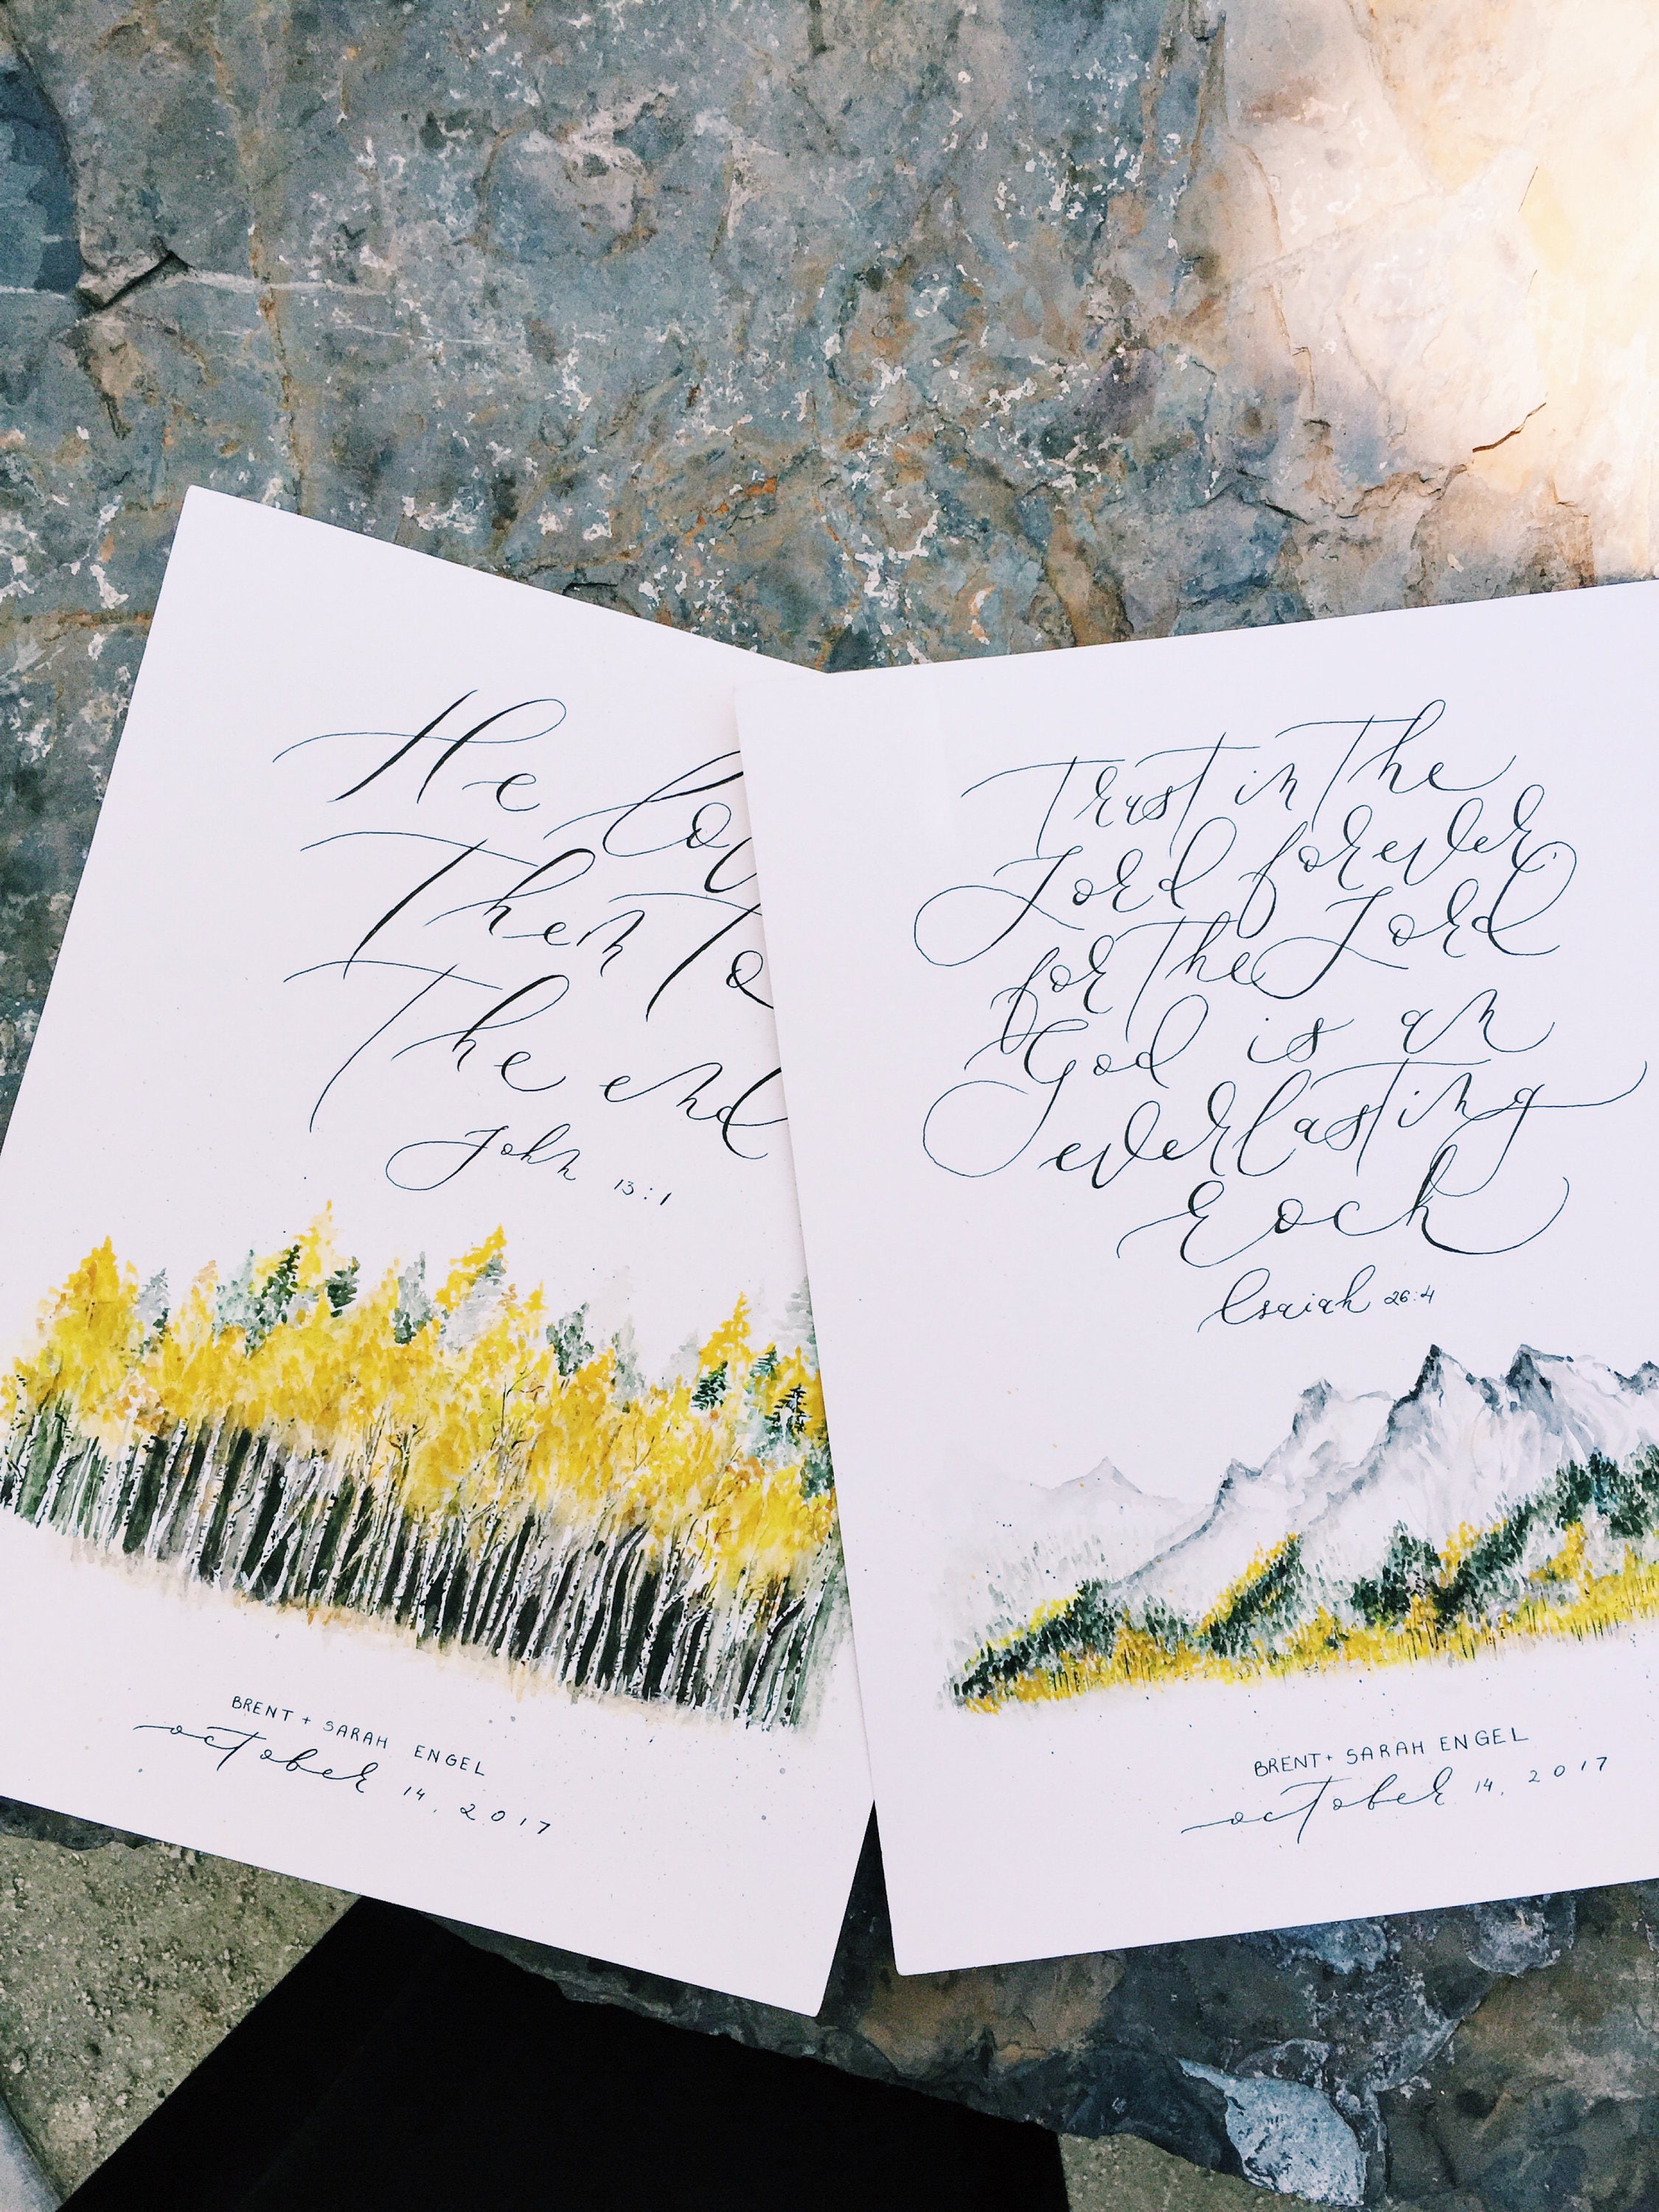 He lov
Them To
The end
John 13:1
BRENT + SARAH ENGEL
october 14, 2017
Trust in The
Lord forever,
for The Lord
God is an
everlasting
Rock
Isaiah 26:4
BRENT + SARAH ENGEL
october 14, 2017